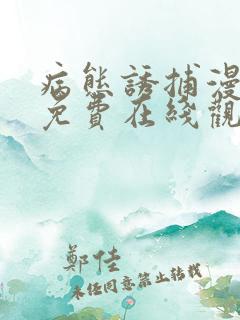 病態誘捕漫
免費在綫觀
鄭佳
未經同意禁止轉載